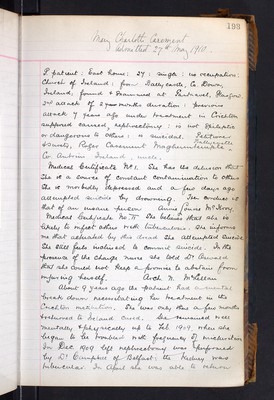 193
Mary Charlotte Casement
Admitted 27th May 1910.
P. patient: East house: 27: single: no occupation:
Church of Ireland: from Ballycastle, Co Down,
Ireland; found & examined at
2nd attack of 2 years months duration: previous
attack 7 years ago under treatment in Crichton
supposed carried, nephrectomy: is not epileptic
or dangerous to others: is suicidal. Petitioner
Roger Casement Magherintemple Ballycastle
Co. Antrim Ireland, uncle.
Medical Certificate No I. She has the delusion that
She is a source of constant contamination to others.
She is morbidly depressed and a few days ago
attempted suicide by drowning. Her conduct is
that of an insane person.
Medical Certificate No II. She believes that she is
likely to infect others with tuberculosis. She informs
me that actuated by this dread she attempted suicide
She still feels inclined to commit suicide. In the
presence of the charge nurse she told Dr
that she could not keep a promise to abstain from
injuring herself. Arch. N. McLellan.
About 9 years ago the patient had a mental
break down necessitating her treatment in the
Crichton institution. She was there a few months
& returned to Ireland cured. She remained well
mentally & physically up to Feb 1909, when she
began to be troubled with frequency of micturition
In Dec 1909 left nephrectomy was performed
by Dr Campbell of Belfast: the kidney was
tubercular. In April she was able to return